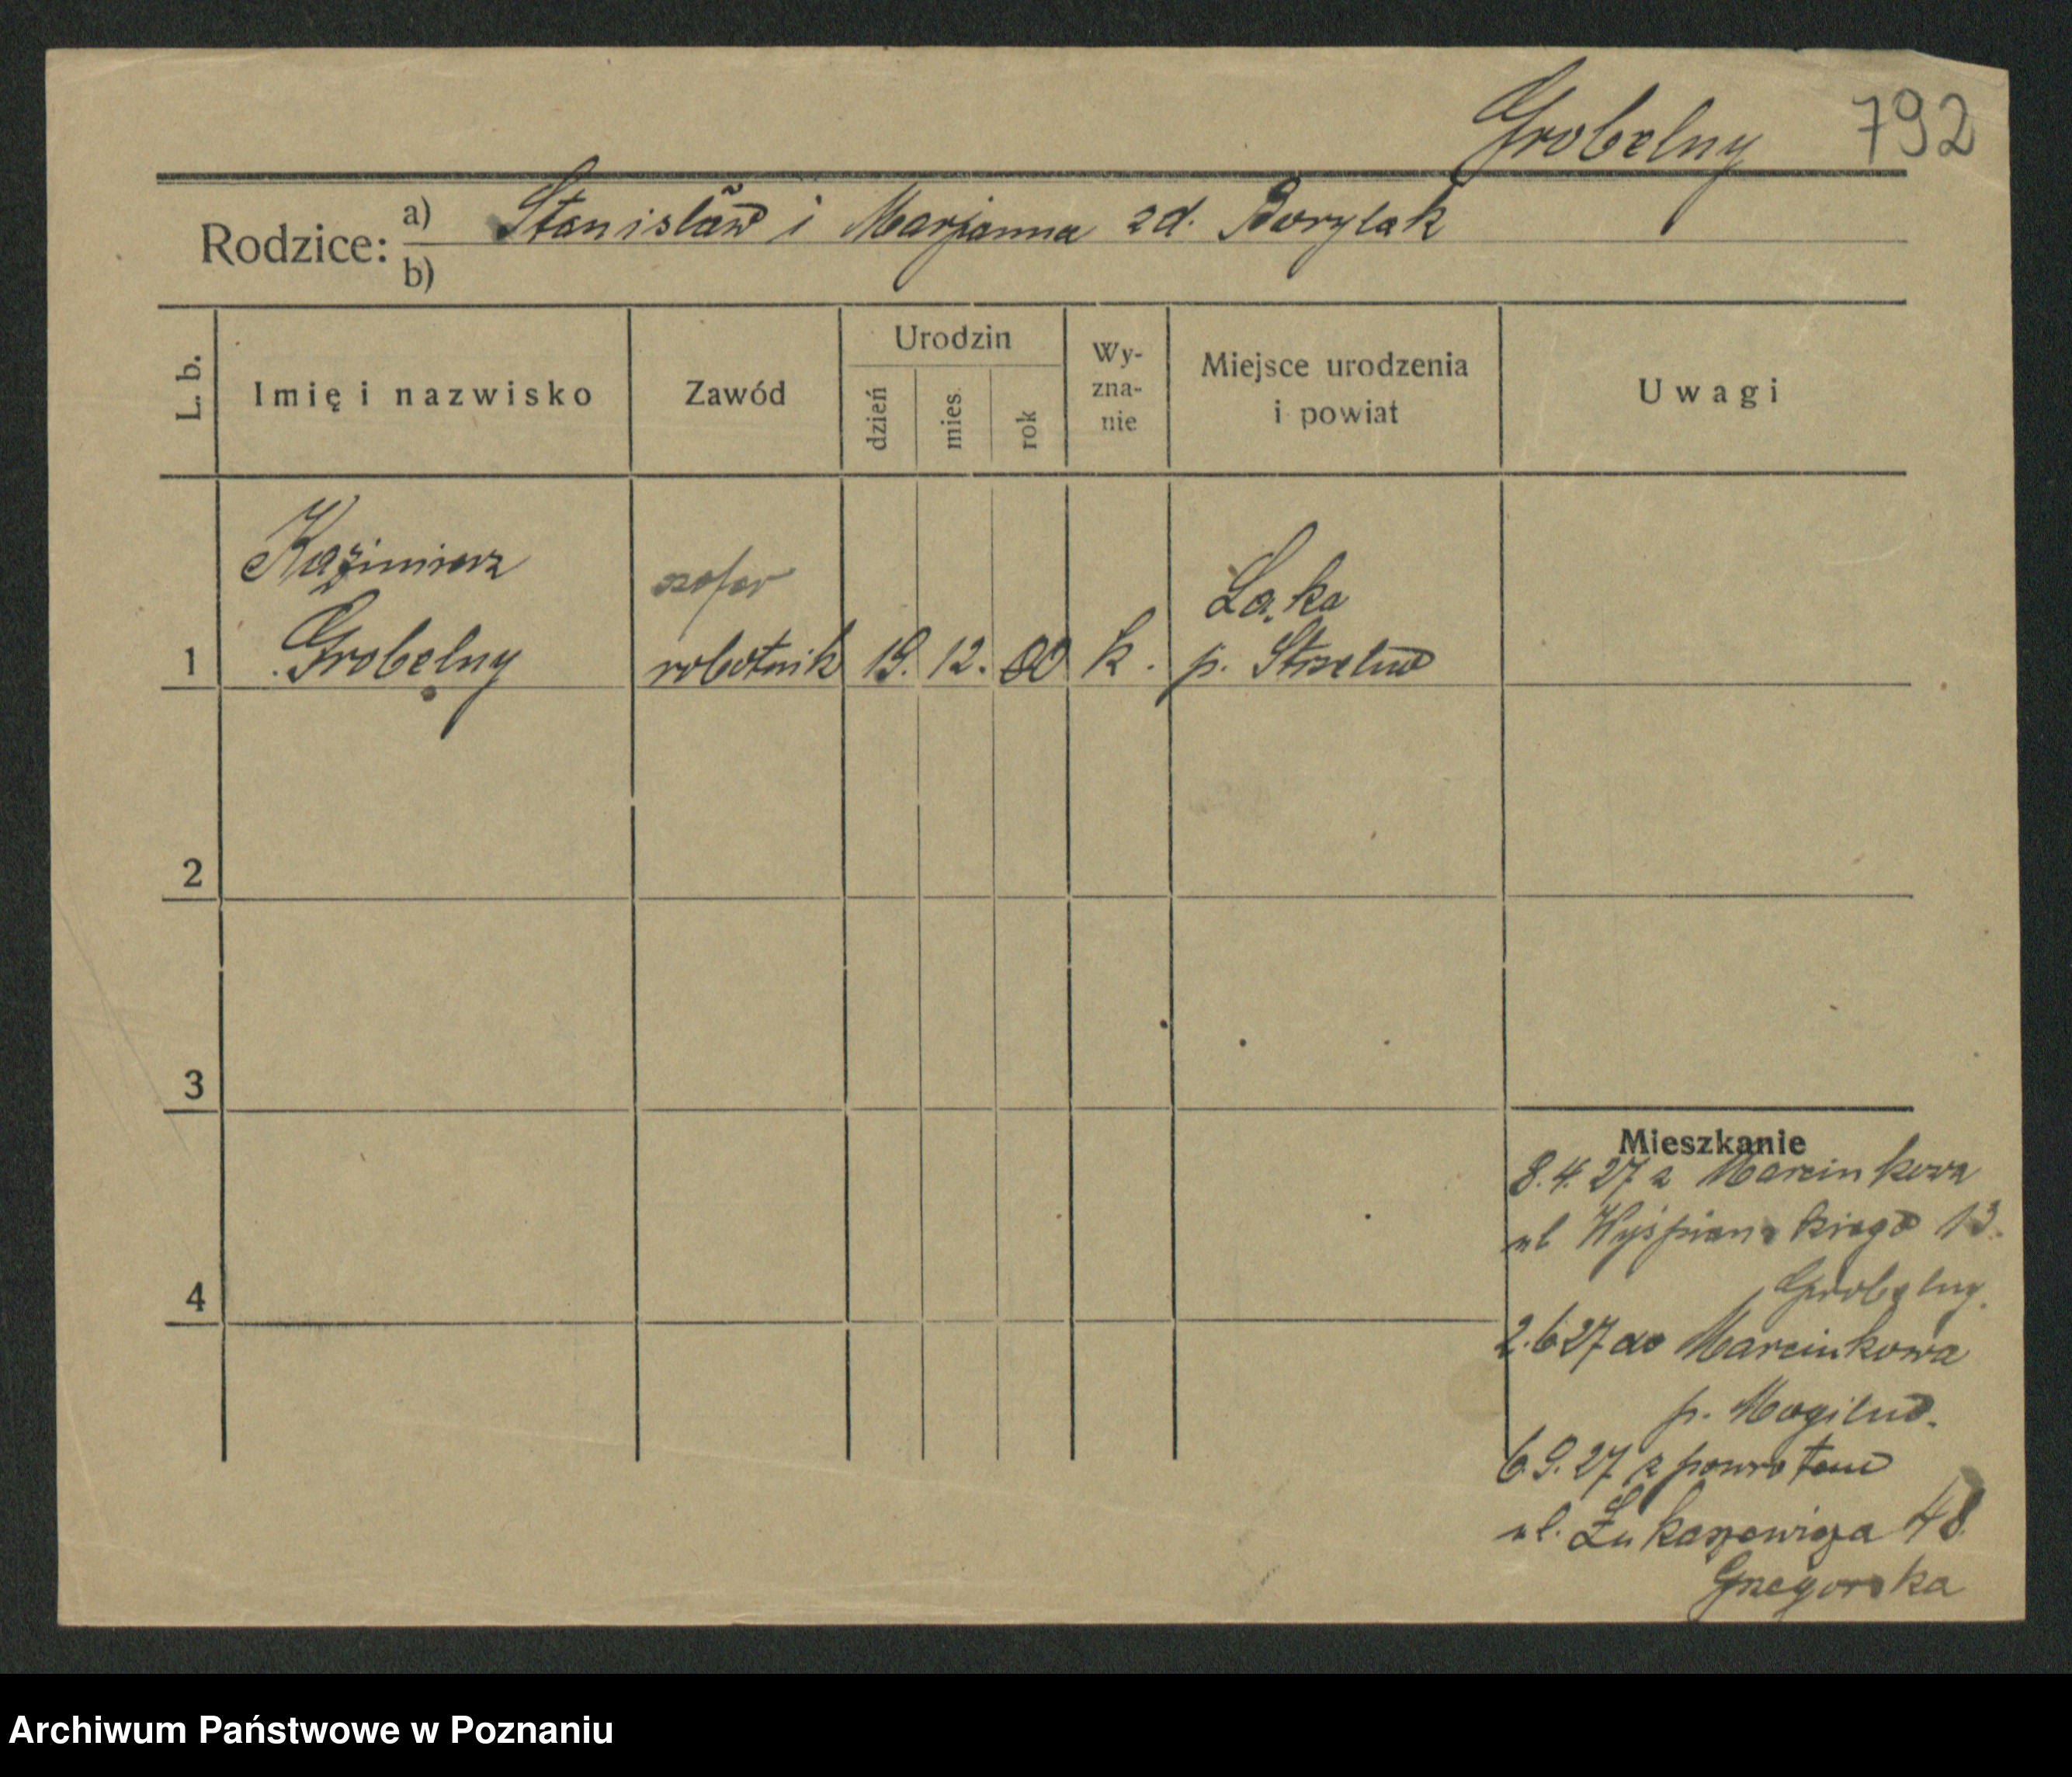 Grobelny 792
Rodzice: a) Stanisław i Marjanna zd. Borylak
b)
L. b. Imię i nazwisko Zawód Urodzin dzień mies. rok Wy-zna-nie Miejsce urodzenia i powiat Uwagi
Kazimierz szofer Łąka
1 Grobelny robotnik 19. 12. 00 k. p. Strzelno
2
3
Mieszkanie
8.4.27 z Marcinkowa
ul Wyśpianskiego 13.
4 Grobelny.
2.6 27 do Marcinkowa
p. Mogilno.
6.9.27 z powrotem
ul. Łukaszewicza 48
Grzegorska
Archiwum Państwowe w Poznaniu